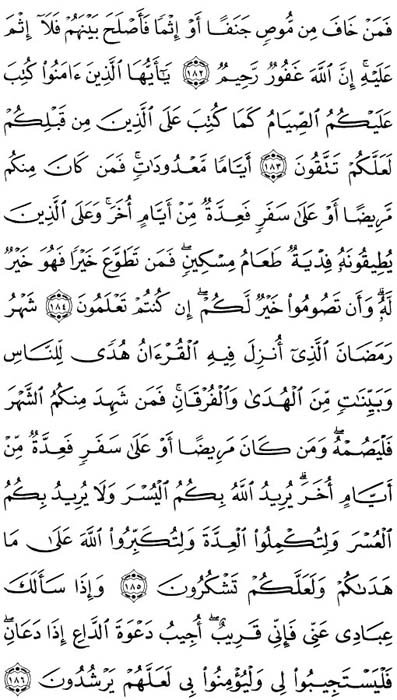 فَمَنْ خَافَ مِن مُّوصٍ جَنَفًا أَوْ إِثْمًا فَأَصْلَحَ بَيْنَهُمْ فَلَآ إِثْمَ
عَلَيْهِ ۚ إِنَّ ٱللَّهَ غَفُورٌ رَّحِيمٌ ١٨٢ يَٰٓأَيُّهَا ٱلَّذِينَ ءَامَنُوا۟ كُتِبَ
عَلَيْكُمُ ٱلصِّيَامُ كَمَا كُتِبَ عَلَى ٱلَّذِينَ مِن قَبْلِكُمْ
لَعَلَّكُمْ تَتَّقُونَ ١٨٣ أَيَّامًا مَّعْدُودَٰتٍ ۚ فَمَن كَانَ مِنكُم
مَّرِيضًا أَوْ عَلَىٰ سَفَرٍ فَعِدَّةٌ مِّنْ أَيَّامٍ أُخَرَ ۚ وَعَلَى ٱلَّذِينَ
يُطِيقُونَهُۥ فِدْيَةٌ طَعَامُ مِسْكِينٍ ۖ فَمَن تَطَوَّعَ خَيْرًا فَهُوَ خَيْرٌ
لَّهُۥ ۚ وَأَن تَصُومُوا۟ خَيْرٌ لَّكُمْ ۖ إِن كُنتُمْ تَعْلَمُونَ ١٨٤ شَهْرُ
رَمَضَانَ ٱلَّذِىٓ أُنزِلَ فِيهِ ٱلْقُرْءَانُ هُدًى لِّلنَّاسِ
وَبَيِّنَٰتٍ مِّنَ ٱلْهُدَىٰ وَٱلْفُرْقَانِ ۚ فَمَن شَهِدَ مِنكُمُ ٱلشَّهْرَ
فَلْيَصُمْهُ ۖ وَمَن كَانَ مَرِيضًا أَوْ عَلَىٰ سَفَرٍ فَعِدَّةٌ مِّنْ
أَيَّامٍ أُخَرَ ۗ يُرِيدُ ٱللَّهُ بِكُمُ ٱلْيُسْرَ وَلَا يُرِيدُ بِكُمُ
ٱلْعُسْرَ وَلِتُكْمِلُوا۟ ٱلْعِدَّةَ وَلِتُكَبِّرُوا۟ ٱللَّهَ عَلَىٰ مَا
هَدَىٰكُمْ وَلَعَلَّكُمْ تَشْكُرُونَ ١٨٥ وَإِذَا سَأَلَكَ
عِبَادِى عَنِّى فَإِنِّى قَرِيبٌ ۖ أُجِيبُ دَعْوَةَ ٱلدَّاعِ إِذَا دَعَانِ ۖ
فَلْيَسْتَجِيبُوا۟ لِى وَلْيُؤْمِنُوا۟ بِى لَعَلَّهُمْ يَرْشُدُونَ ١٨٦